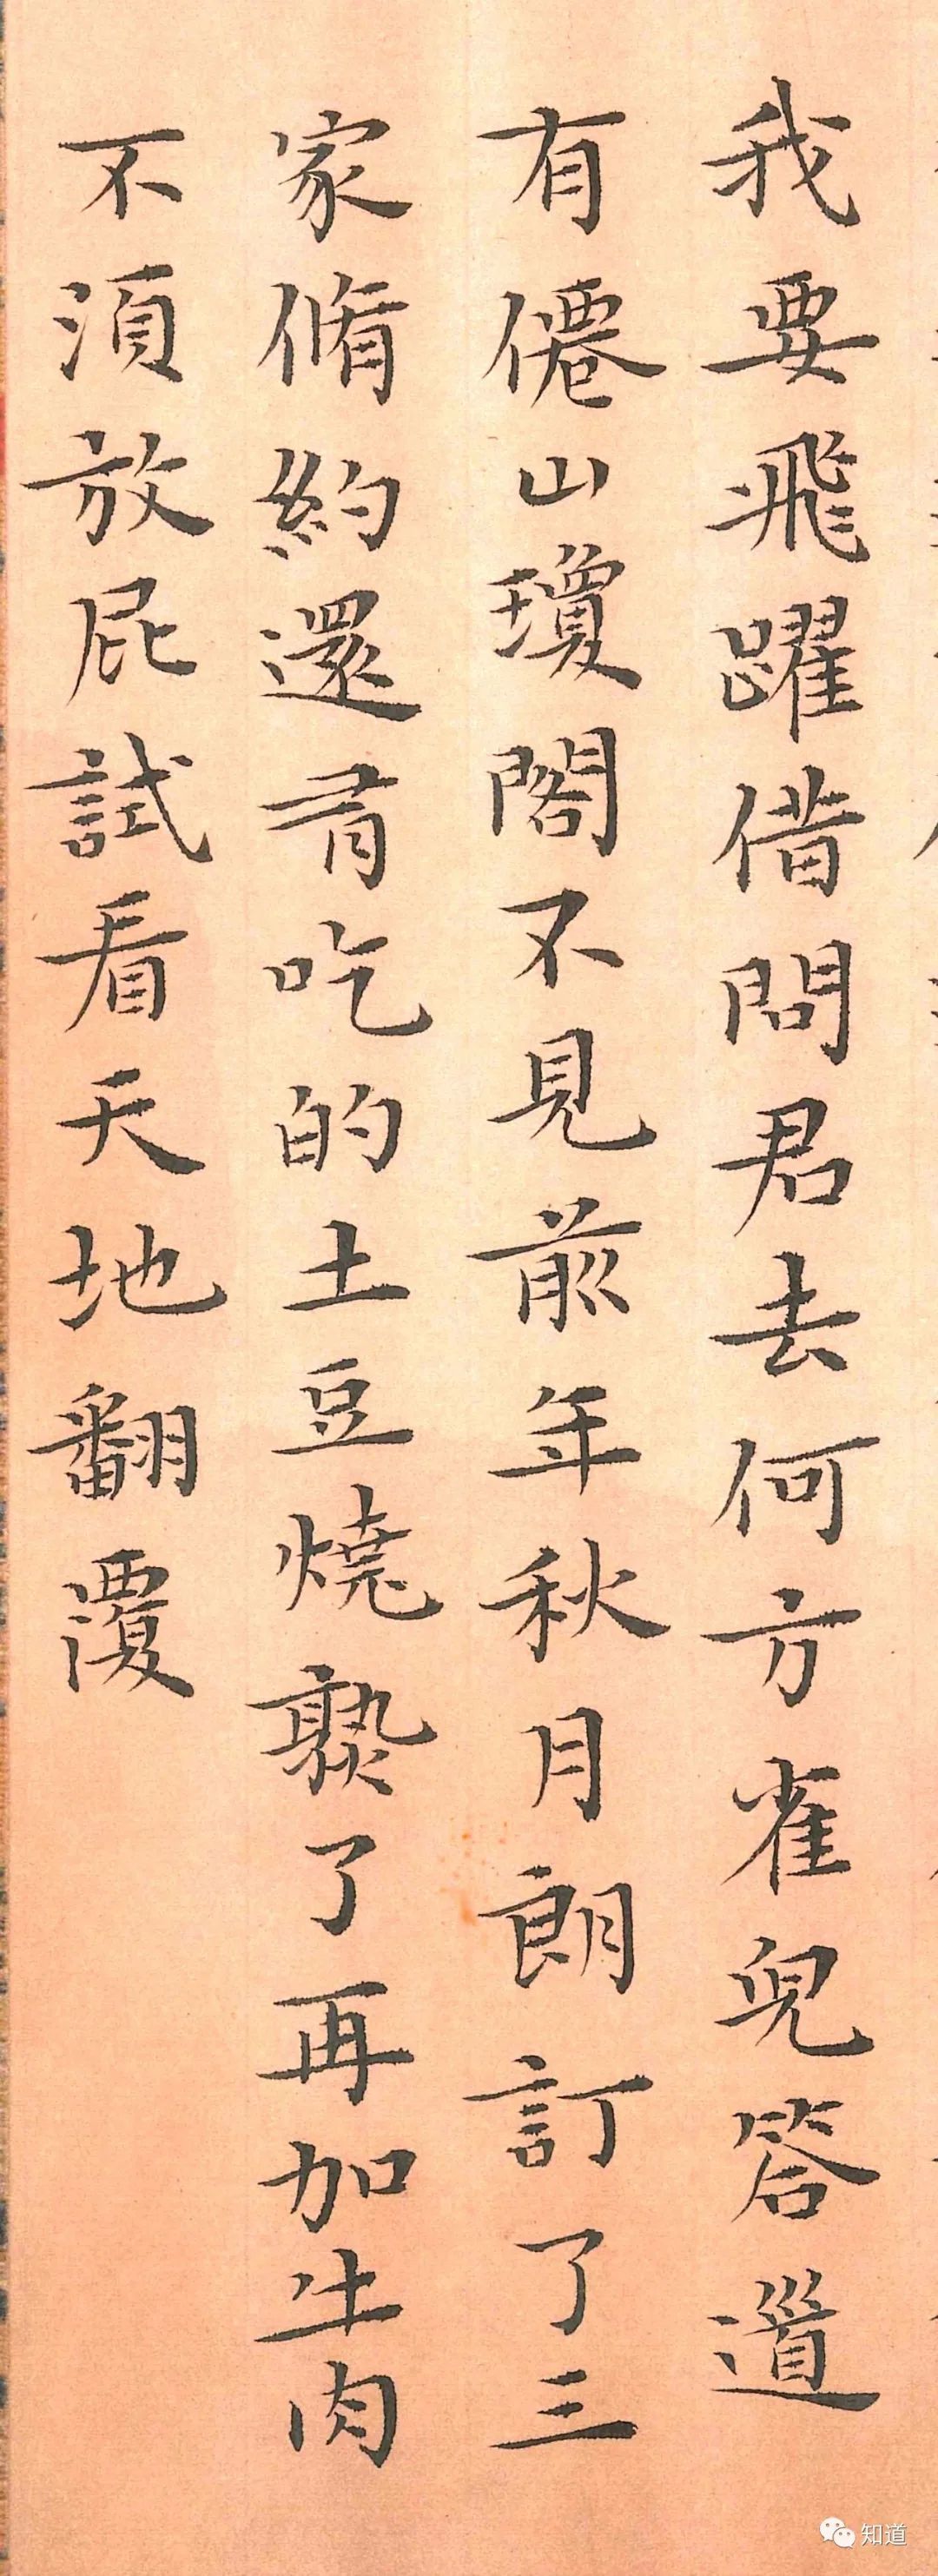 我要飛躍借問君去何方雀兒答道
有僊山瓊閣不見前年秋月朗訂了三
家脩約還有吃的土豆燒熟了再加牛肉
不須放屁試看天地翻覆
知道